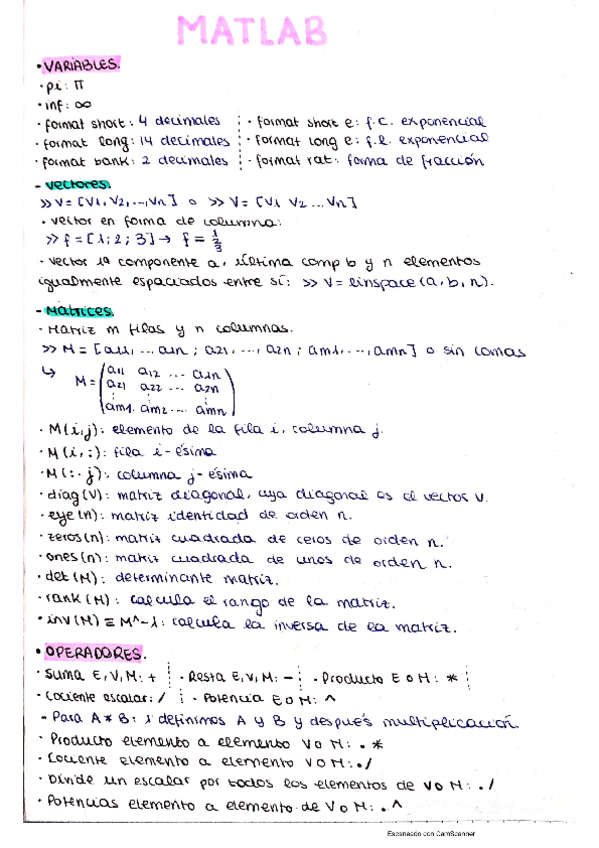 MATLAB
• VARIABLES.
· pi: π
· inf: ∞
· format short: 4 decimales · format short e: f.c. exponencial
· format long: 14 decimales · format long e: f.l. exponencial
· format bank: 2 decimales · format rat: forma de fracción
- vectores.
>> V = [V1, V2, ..., Vn] o >> V = [V1 V2 ... Vn]
· vector en forma de columna:
>> f = [1; 2; 3] → f = 1 2 3
· vector 1ª componente a, última comp b y n elementos
igualmente espaciados entre sí: >> V = linspace(a, b, n).
- Matrices.
· Matriz m filas y n columnas.
>> M = [a11, ... a1n ; a21, ..., a2n ; am1, ..., amn] o sin comas
↳ M = (a11 a12 ... a1n
a21 a22 ... a2n
⋮ ⋮ ⋮
am1 am2 ... amn)
· M(i,j): elemento de la fila i, columna j.
· M(i,:): fila i-ésima
· M(:·j): columna j-ésima
· diag(V): matriz diagonal, cuya diagonal es el vector v.
· eye(n): matriz identidad de orden n.
· zeros(n): matriz cuadrada de ceros de orden n.
· ones(n): matriz cuadrada de unos de orden n.
· det(M): determinante matriz.
· rank(M): calcula el rango de la matriz.
• inv(M) ≡ M^-1: calcula la inversa de la matriz.
• OPERADORES.
· Suma E, V, M: + · Resta E, V, M: - · Producto E o M: *
· Cociente escalar: / · Potencia E o M: ^
- Para A * B: 1 definimos A y B y después multiplicación
· Producto elemento a elemento V o M: .*
· Cociente elemento a elemento V o M: ./
· Divide un escalar por todos los elementos de V o M: ./
· Potencias elemento a elemento de V o M: .^
Escaneado con CamScanner